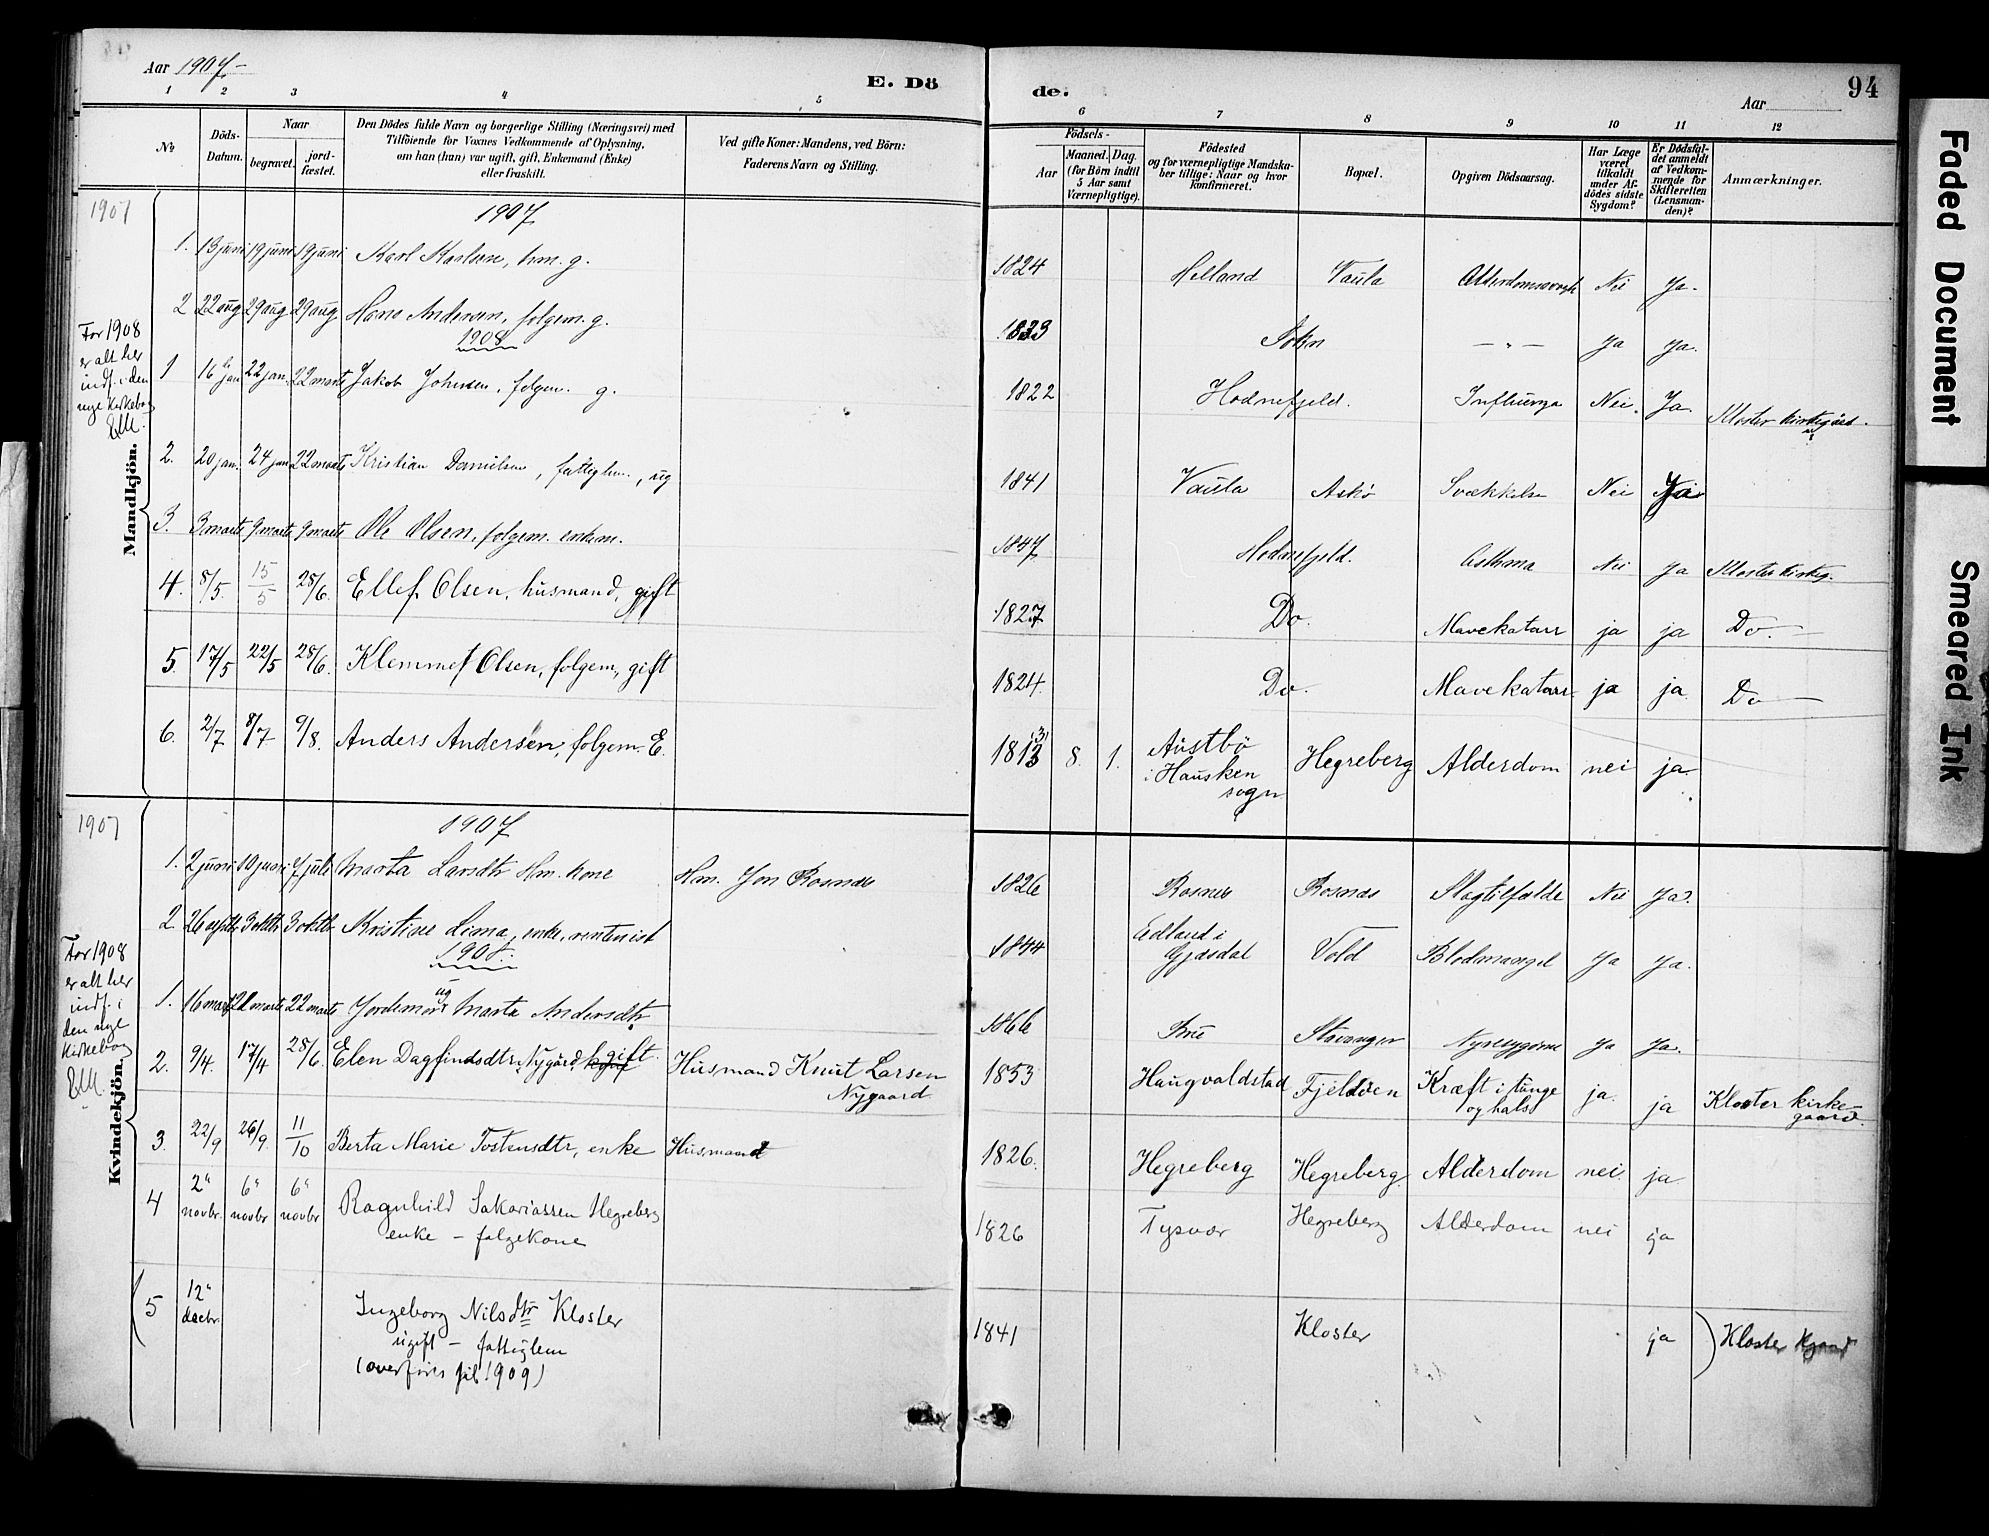 Aar 1907-
E. Dö
de.
Aar
94
1 2 3 4 5
6 7 8 9 10 11 12
No
Döds-Datum.
Naar
begravet.
jordfæstet.
Den Dödes fulde Navn og borgerlige Stilling (Næringsvei) med
Tilföiende for Voxnes Vedkommende af Oplysning,
om han (hun) var ugift, gift, Enkemand (Enke)
eller fraskilt.
Ved gifte Koner: Mandens, ved Börn:
Faderens Navn og Stilling.
Födsels-
Aar
Maaned. Dag.
(for Börn indtil
5 Aar samt
Værnepligtige).
Födested
og for værnepligtige Mandska-
ber tillige: Naar og hvor
konfirmeret.
Bopæl.
Opgiven Dödsaarsag.
Har Læge
været
tilkaldt
under Af-
dödes sidste
Sygdom?
Er Dödsfal-
det anmeldt
af Vedkom-
mende for
Skifteretten
(Lensman-
den)?
Anmærkninger.
1907
1907
1. 13 juni 19 juni 19 juni Karl Karlsen, hm. g. 1824 Helland Vaula Alderdomssvagh Nei Ja.
2 22 aug 29 aug 29 aug Hans Andersen, folgem. g. 1833 Sokn — " — Ja Ja.
1908
For 1908
er alt her
indf. i den
nye Kirkebog
1 16 jan 22 jan. 22 marts Jakob Johnsen, folgem. g. 1822 Hodnefjeld. Influenza Nei. Ja. Kloster kirkegård.
2. 20 jan. 24 jan 22 marts Kristian Danielsen, fattiglem., ug 1841 Vaula Askö Svækkelse Nei Ja
3. 3 marts 9 marts 9 marts Ole Olsen, folgem. enkem. 1847 Hodnefjeld. Asthma Nei Ja Kloster kirkeg.
4. 8/5. 15/5 28/6. Ellef Olsen, husmand, gift 1827 Do. Mavekatarr ja ja Do.—
5. 17/5 22/5 28/6. Klemmet Olsen, folgem., gift 1824. Do. Mavekatarr ja ja Do —
6. 2/7 8/7 9/8. Anders Andersen, folgem. E. 1813 (3) 8. 1. Austbö
i Hausken
sogn Hegreberg Alderdom nei ja.
Mandkjön.
1907
1907
1. 2 juni 10 juni 7 juli Marta Larsdtr Hm. kone Hm. Jon Rosnes 1826 Rosnes Rosnæs Slagtilfælde Nei Ja.
2 26 septb 3 oktb 3 oktb Kristine Lima, enke, rentenist 1844 Edland i
Gjesdal Vold Blodmangel Ja Ja.
1908.
For 1908
er alt her
indf. i
den nye
Kirkebog
1. 16 marts 21 marts 22 marts Jordemor ug Marta Andersdtr. 1866 Bru Stavanger Nyresygdom Ja Ja.
2. 9/4. 17/4 28/6 Elen Dagfindsdtr, Nygård, gift. Husmand Knut Larsen
Nygaard. 1853 Haugvaldstad Fjelöen Kræft i tunge
og hals ja. ja Kloster kirke-
gaard.
3. 22/9 26/9. 11/10 Berta Marie Tostensdtr, enke Husmand 1826. Hegreberg Hegreberg. Alderdom nei. ja
4 2" novbr. 6" novbr 6" novbr Ragnhild Sakariassen Hegreberg
enke — folgekone 1826 Tysvær Hegreberg Alderdom nei ja
(5 12" decbr. Ingeborg Nilsdtr Kloster
ugift — fattiglem
(overföres til 1909) 1841 Kloster ja ) Kloster
Kvindekjön.
Faded Document
Smeared Ink